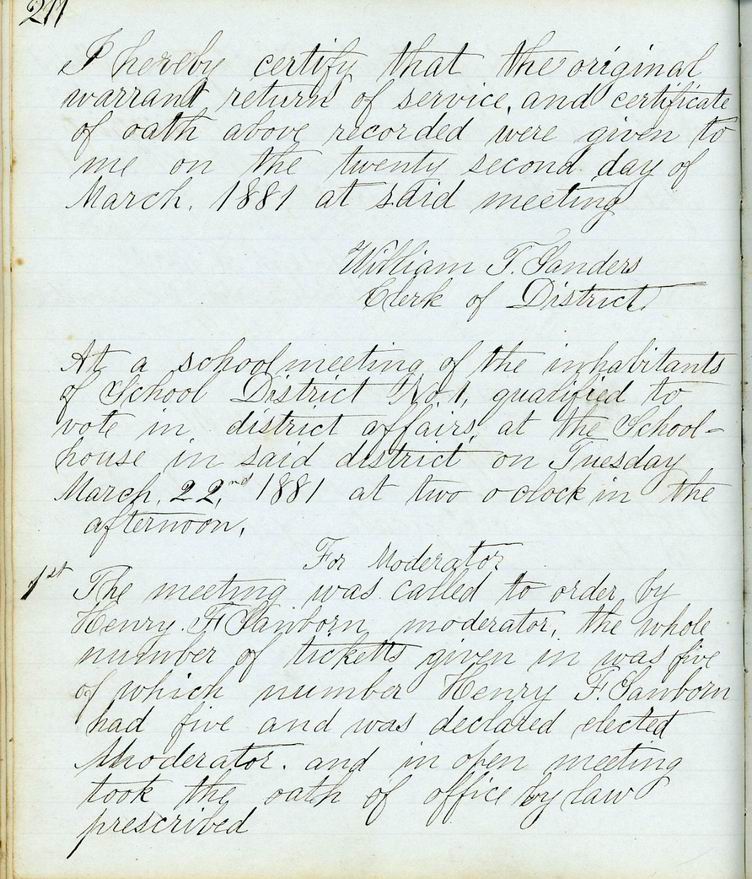 I hereby certify that the original
warrant return of service, and certificate
of oath above recorded were given to
me on the twenty second day of
March, 1881 at said meeting
William T. Sanders
Clerk of District.
At a school meeting of the inhabitants
of School District No 1, qualified to
vote in district affairs, at the School-
house in said district, on Tuesday
March, 22,nd 1881 at two o clock in the
afternoon.
For Moderator
1st The meeting was called to order by
Henry F. Sanborn moderator, the whole
number of ticketts given in was five
of which number Henry F. Sanborn
had five and was declared elected
Moderator. and in open meeting
took the oath of office by law
prescribed